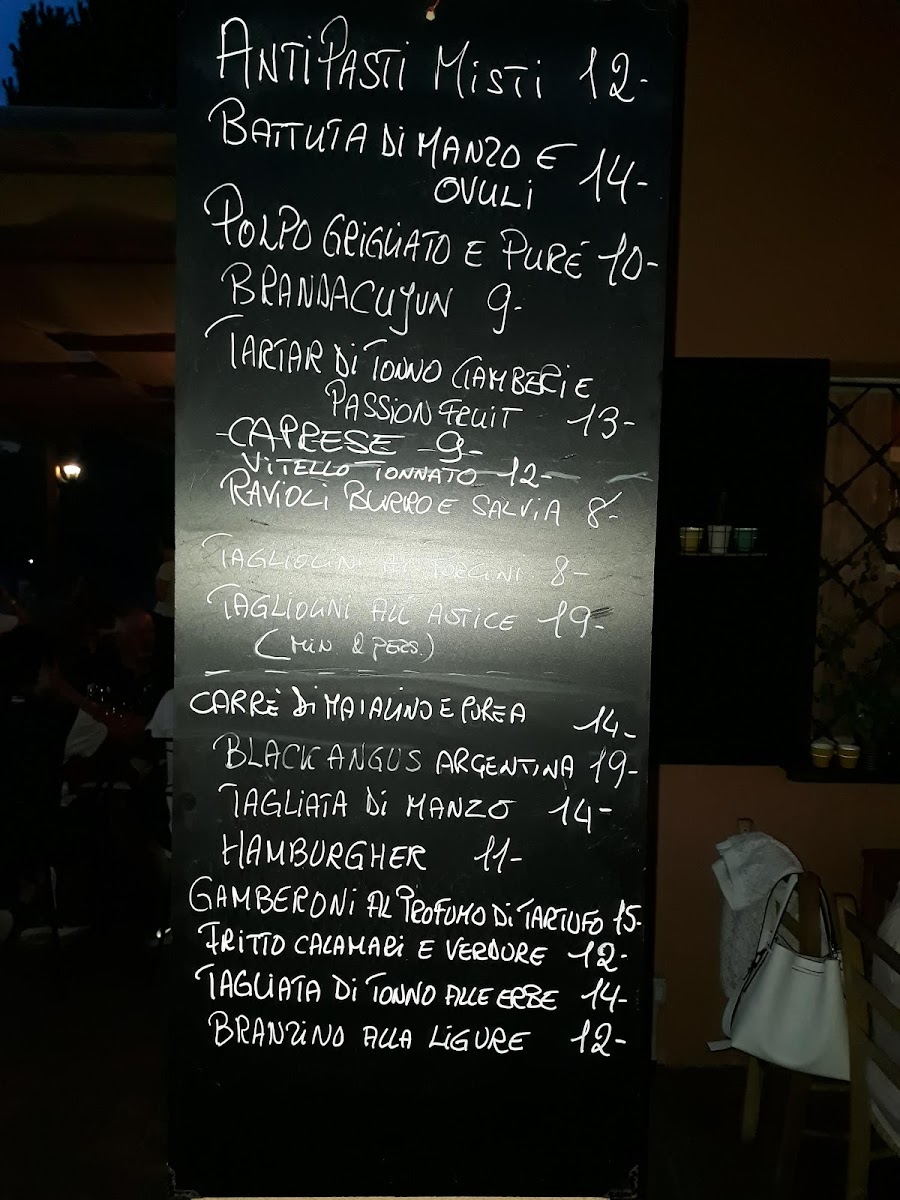 ANTIPASTI MISTI 12-
BATTUTA DI MANZO E
OVULI 14-
POLPO GRIGLIATO E PURÉ 10-
BRANDACUJUN 9-
TARTAR DI TONNO GAMBERI E
PASSION FRUIT 13-
-CAPRESE 9-
VITELLO TONNATO 12-
RAVIOLI BURRO E SALVIA 8-
TAGLIOLINI AI PORCINI 8-
TAGLIOLINI ALL'ASTICE 19-
(MIN 2 PERS.)
CARRÈ DI MAIALINO E PUREA 14-
BLACK ANGUS ARGENTINA 19-
TAGLIATA DI MANZO 14-
HAMBURGHER 11-
GAMBERONI AL PROFUMO DI TARTUFO 15-
FRITTO CALAMARI E VERDURE 12-
TAGLIATA DI TONNO ALLE ERBE 14-
BRANZINO ALLA LIGURE 12-